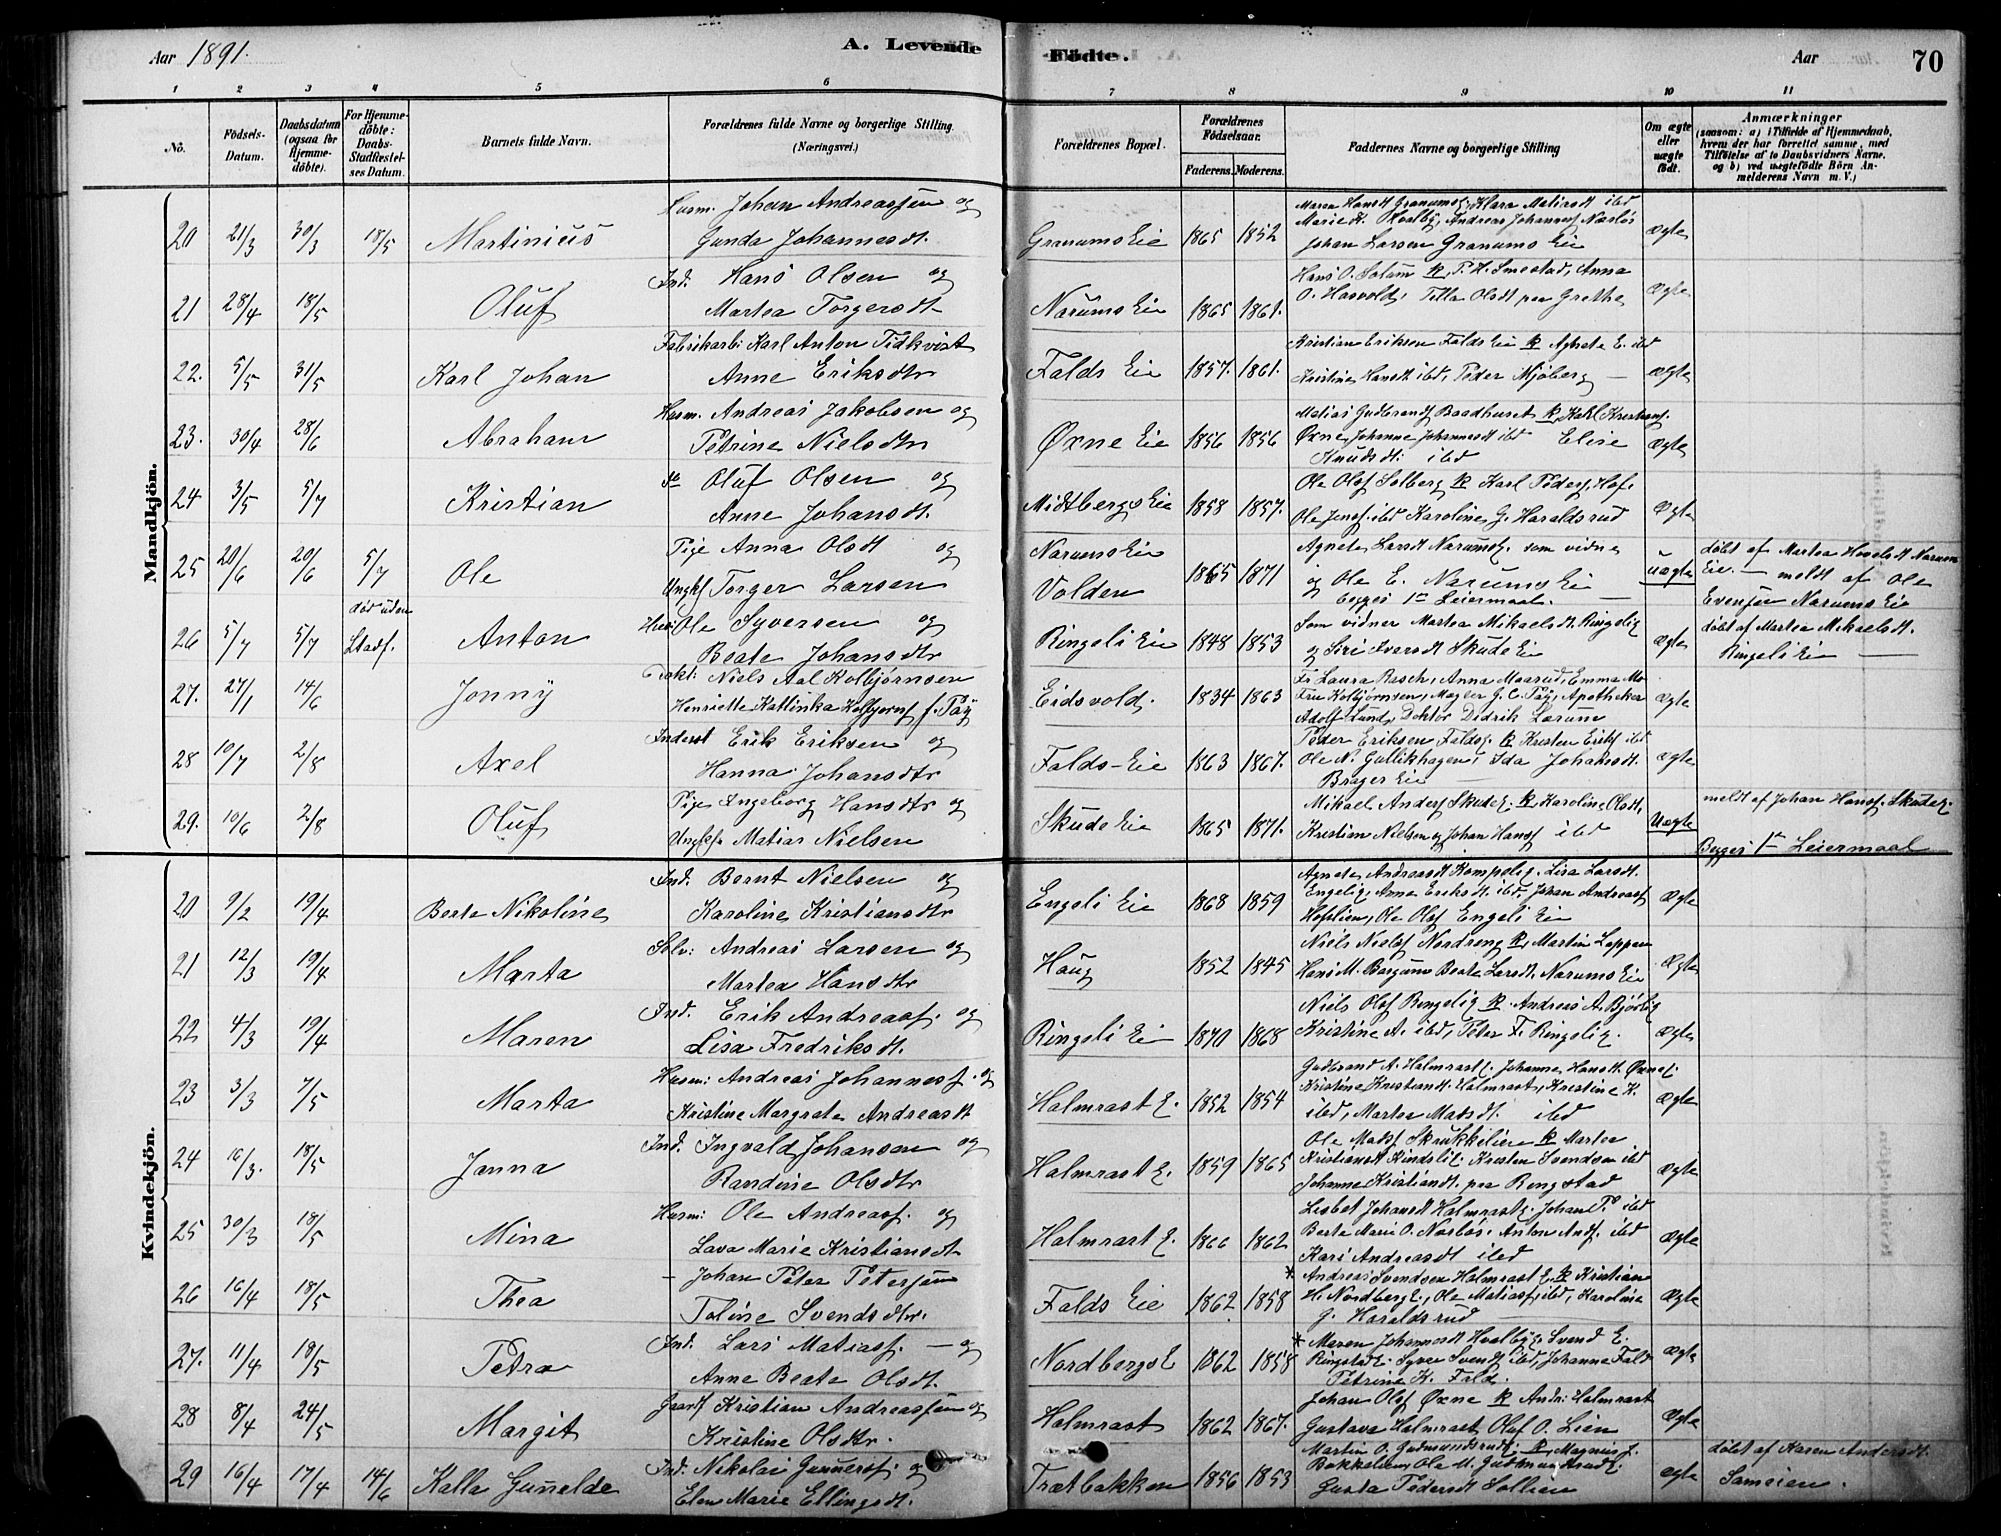 Aar 1891.
A. Levende
Födte.
Aar
70
1 2 3 4 5 6 7 8 9 10 11
No.
Födsels-Datum.
Daabsdatum (ogsaa for Hjemmedöbte).
For Hjemmedöbte: Daabs-Stadfæstelses Datum.
Barnets fulde Navn.
Forældrenes fulde Navne og borgerlige Stilling. (Næringsvei.)
Forældrenes Bopæl.
Forældrenes Födselsaar.
Faderens. Moderens.
Faddernes Navne og borgerlige Stilling
Om ægte eller uægte födt.
Anmærkninger
(saasom: a) i Tilfælde af Hjemmedaab, hvem der har forrettet samme, med Tilföielse af to Daabsvidners Navne, og b) ved uægtefödte Börn Anmelderens Navn m. V.)
Mandkjön.
20 21/3 30/3 18/5 Martinius
Husm. Johan Andreassen og
Gunda Johannesdt.
Granums Eie 1865 1852
Johan Larsen Granums Eie
ægte
21 28/4 18/5 Oluf
Ind. Hans Olsen og
Martea Torgersdt
Narums Eie 1865 1861.
Hans O. Solum k, P. H. Smestad, Anna
ægte
22. 5/5 31/5 Karl Johan
Fabrikarb: Karl Anton Tidkvist
Anne Eriksdtr
Falds Eie 1857. 1861.
Kristian Eriksen Falds Eie k Agnete E. ibd
Kristine Hansdt ibd, Peder Mjöberg
ægte
23. 30/4 28/6 Abraham
Husm. Andreas Jakobsen og
Petrine Nielsdtr
Øxne Eie 1856 1856
Øxne, Johanne Johannesdt ibd Elise
Knudsdt. ibd
ægte
24 3/5 5/7 Kristian
Oluf Olsen og
Anne Johansdt.
Midtbergs Eie 1858 1857.
Ole Olsf Solberg k Karl Pedersf. Hof.
Ole Jensf. ibd Karoline G. Haraldsrud
ægte
25 20/6 20/6 5/7 Ole
Pige Anna Olsdt og
Ungkf Torger Larsen
Narums Eie
Volden
1865 1871
Agnete Larsdt Narumse. som vidne
og Ole E. Narums Eie
begges 1ste Leiermaal.
uægte
döbt af Martea Hovelsdt Narum
Eie. meldt af Ole
Evensen Narums Eie
26 5/7 5/7 død uden Stadf. Anton
Husm: Ole Syversen og
Beate Johansdtr
Ringeli Eie 1848 1853
Som vidner Martea Mikaelsdt. Ringelie
og Siri Iversdt Skude Eie
ægte
döbt af Martea Mikaelsdt.
Ringeli Eie
27. 27/1 14/6 Jonny
Niels Aal Kolbjørnsen
Henriette Kattinka Kolbjørns f. Pay
Eidsvold. 1834 1863
Fr Laura Rasch, Anna Maarud, Emma Mo
Fru Kolbjørnsen, Mægler G. C. Pay, Apotheker
Adolf Lund, Doktor Didrik Lærum
ægte
28 10/7 2/8 Axel
Inderst Erik Eriksen og
Hanna Johansdtr
Falds-Eie 1863 1867.
Peder Eriksen Faldse. k Kristen Eriksf ibd
Ole N. Gullikhagen, Ida Johansdt.
Brager Eie
ægte
29. 10/6 2/8 Oluf
Pige Ingeborg Hansdtr og
Ungkf Matias Nielsen
Skude Eie 1865 1871.
Mikael Andersf Skudee. k Karoline Olsdt,
Kristian Nielsen og Johan Hansf ibd
Uægte
meldt af Johan Hansf. Skudee.
Begges 1ste Leiermaal
Kvindekjön.
20 9/2 19/4 Berte Nikoline
Ind. Bernt Nielsen og
Karoline Kristiansdtr
Engeli Eie 1868 1859
Engelie, Anne Eriksdt. ibd, Johan Andreasf
Hofslien, Ole Olsf Engeli Eie
ægte
21 12/3 19/4 Marta
Selv: Andreas Larsen og
Martea Hansdtr
Haug 1852 1845
Niels Nielsf Nordreng k, Martin Loppen
Hans M. Bergum Beate Larsdt. Narums Eie
ægte
22 4/3 19/4 Maren
Ind. Erik Andreasf. og
Lisa Fredriksdt.
Ringeli Ei 1870 1868
Niels Olsf Ringelie k. Andreas A. Bjørlie
Kristine A. ibd, Peter F. Ringelie.
ægte
23 3/3 7/5 Marta
Husm: Andreas Johannesf. og
Kristine Margrete Andreasdt
Halmrast E. 1852 1854
Gudbrand A. Halmrast, Johanne Hansdt Øxnee.
Kristine Kristiansdt. Halmrast, Kristine K.
ibd, Martea Matsdt. ibd
ægte
24 16/3. 18/5 Janna
Ind. Ingvald Johansen og
Randine Olsdtr
Halmrast E. 1859 1865
Ole Madsf Skrukkelien k Martea
Kristiansdt Kindslie. Kristen Svendsen ibd
Johanne Kristiansdt. paa Ringstad
ægte
25 30/3 18/5 Mina
Husm: Ole Andreasf. og
Lava Marie Kristiansdt
Halmrast E. 1866 1862
Lisbet Johansdt Halmraste. Johan P. ibd
Berte Marie O. Næsbös. Anton Andf. ibd
Kari Andreasdt ibd
ægte
26 16/4 18/5 Thea
Johan Peter Petersen
Toline Svendsdtr.
Falds Eie 1862 1858
* Andreas Svendsen Halmrast E. k Kristian
H. Nordberge., Ole Matiasf, ibd, Karoline
G. Haraldsrud
ægte
27. 11/4 18/5 Petra
Ind. Lars Matiasf. og
Anne Beate Olsdt.
Nordbergs E 1862 1858
* Maren Johannesdt Hvalbye. Svend E.
Ringstade. Syver Svendf ibd, Johanne Fald
Petrine K. Fald.
ægte
28 8/4 24/5 Margit
Gaardf Kristian Andreassen og
Kristine Olsdtr.
Halmrast 1862 1867.
Johan Olsf Øxne k Andr: Halmrast
Gustava Halmrast Olaf O. Lien
ægte
29 16/4 17/4 14/6 Kalla Gunelde
Ind. Nikolai Gunnersf. og
Elen Marie Ellingsdt.
Trætbakken 1856 1853
Martin O. Gudmundsrud. k, Magnus J.
Bakkelien, Ole M. Gudmundsrude.
Gusta Pedersdt Sollien
ægte
döbt af Karen Andersdt.
Sameien.